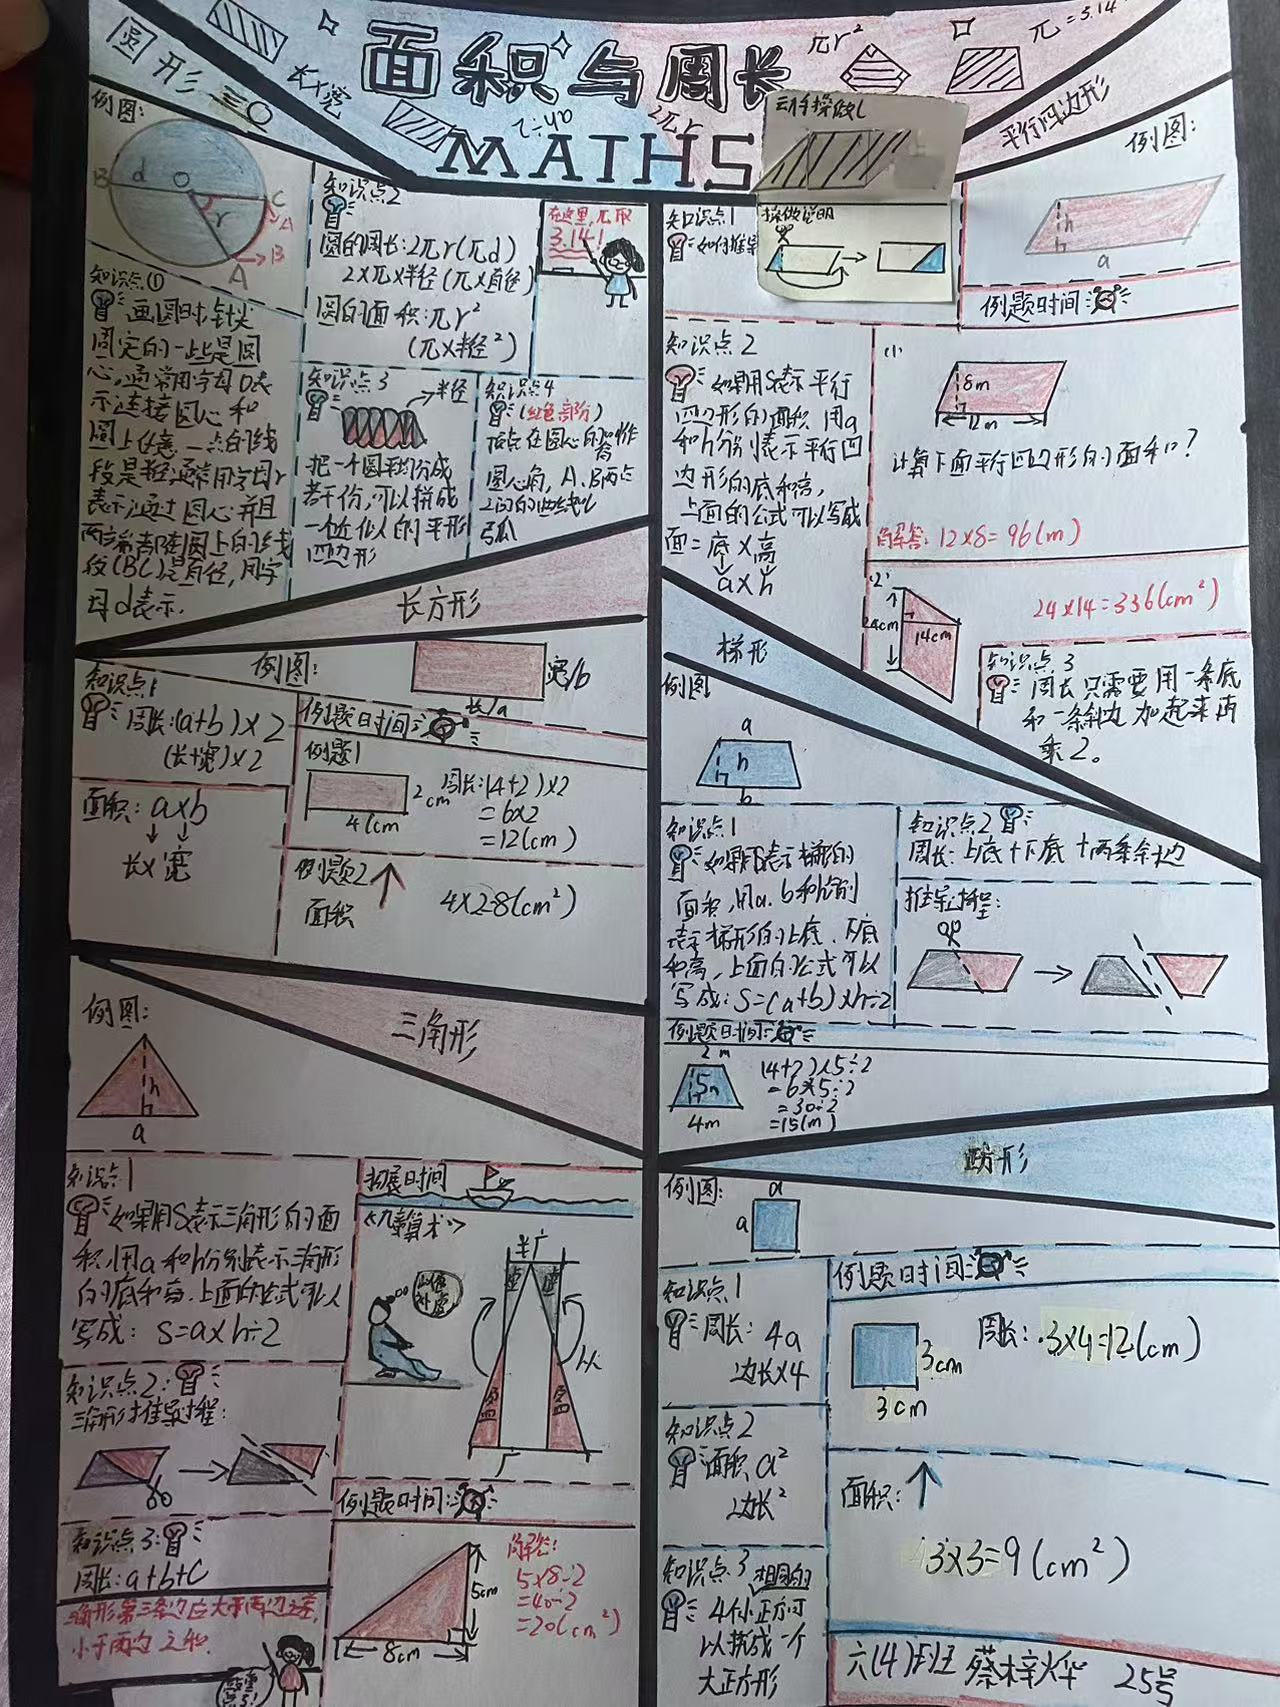 面积与周长
MATHS
圆形
长×宽
πr²
π=3.14
2πr
平行四边形
例图:
B d O C
r
A
知识点①
画圆时,针尖
固定的一点是圆
心,通常用字母O表
示,连接圆心和
圆上任意一点的线
段是半径,通常用字母r
表示,通过圆心并且
两端都在圆上的线
段(BC)是直径,用字
母d表示.
知识点2
圆的周长:2πr(πd)
2×π×半径(π×直径)
圆的面积:πr²
(π×半径²)
在这里,π取
3.14!
知识点3
半径
把一个圆平均分成
若干份,可以拼成
一个近似的平行
四边形
知识点4
(红色部分)
顶点在圆心的角叫作
圆心角,A、B两点
之间的曲线叫
弧
动手操做
操做说明
知识点1
如何推导
例图:
h
a
例题时间:
知识点2
如果用S表示平行
四边形的面积,用a
和h分别表示平行四
边形的底和高,
上面的公式可以写成
面=底×高
a×h
(1)
8m
12m
计算下面平行四边形的面积?
解答:12×8=96(m)
(2)
24cm
14cm
24×14=336(cm²)
知识点3
周长只需要用一条底
和一条斜边加起来再
乘2。
长方形
例图:
宽/b
长/a
知识点1
周长:(a+b)×2
(长+宽)×2
面积:a×b
长×宽
例题时间:
例题1
2cm
4(cm
周长:(4+2)×2
=6×2
=12(cm)
例题2
面积
4×2=8(cm²)
梯形
例图
a
h
b
知识点1
如果用S表示梯形的
面积,用a、b和h分别
表示梯形的上底、下底
和高,上面的公式可以
写成:S=(a+b)×h÷2
知识点2
周长:上底+下底+两条斜边
推导过程:
例题时间:
2m
5m
4m
(4+2)×5÷2
=6×5÷2
=30÷2
=15(m)
三角形
例图:
h
a
知识点1
如果用S表示三角形的面
积,用a和h分别表示三角形
的底和高,上面的公式可以
写成:S=a×h÷2
知识点2:
三角形推导过程:
知识点3:
周长:a+b+c
三角形第三条边应大于两边之差,
小于两边之和.
拓展时间
《九章算术》
以盈补虚
半广
虚 虚
从
盈 盈
广
例题时间:
5cm
8cm
解答:
5×8÷2
=40÷2
=20(cm²)
正方形
例图:
a
a
知识点1
周长:4a
边长×4
知识点2
面积a²
边长²
知识点3
相同的
4个小正方可
以拼成一个
大正方形
例题时间:
3cm
3cm
周长:3×4=12(cm)
面积:
3×3=9(cm²)
六(4)班 蔡梓烨 25号